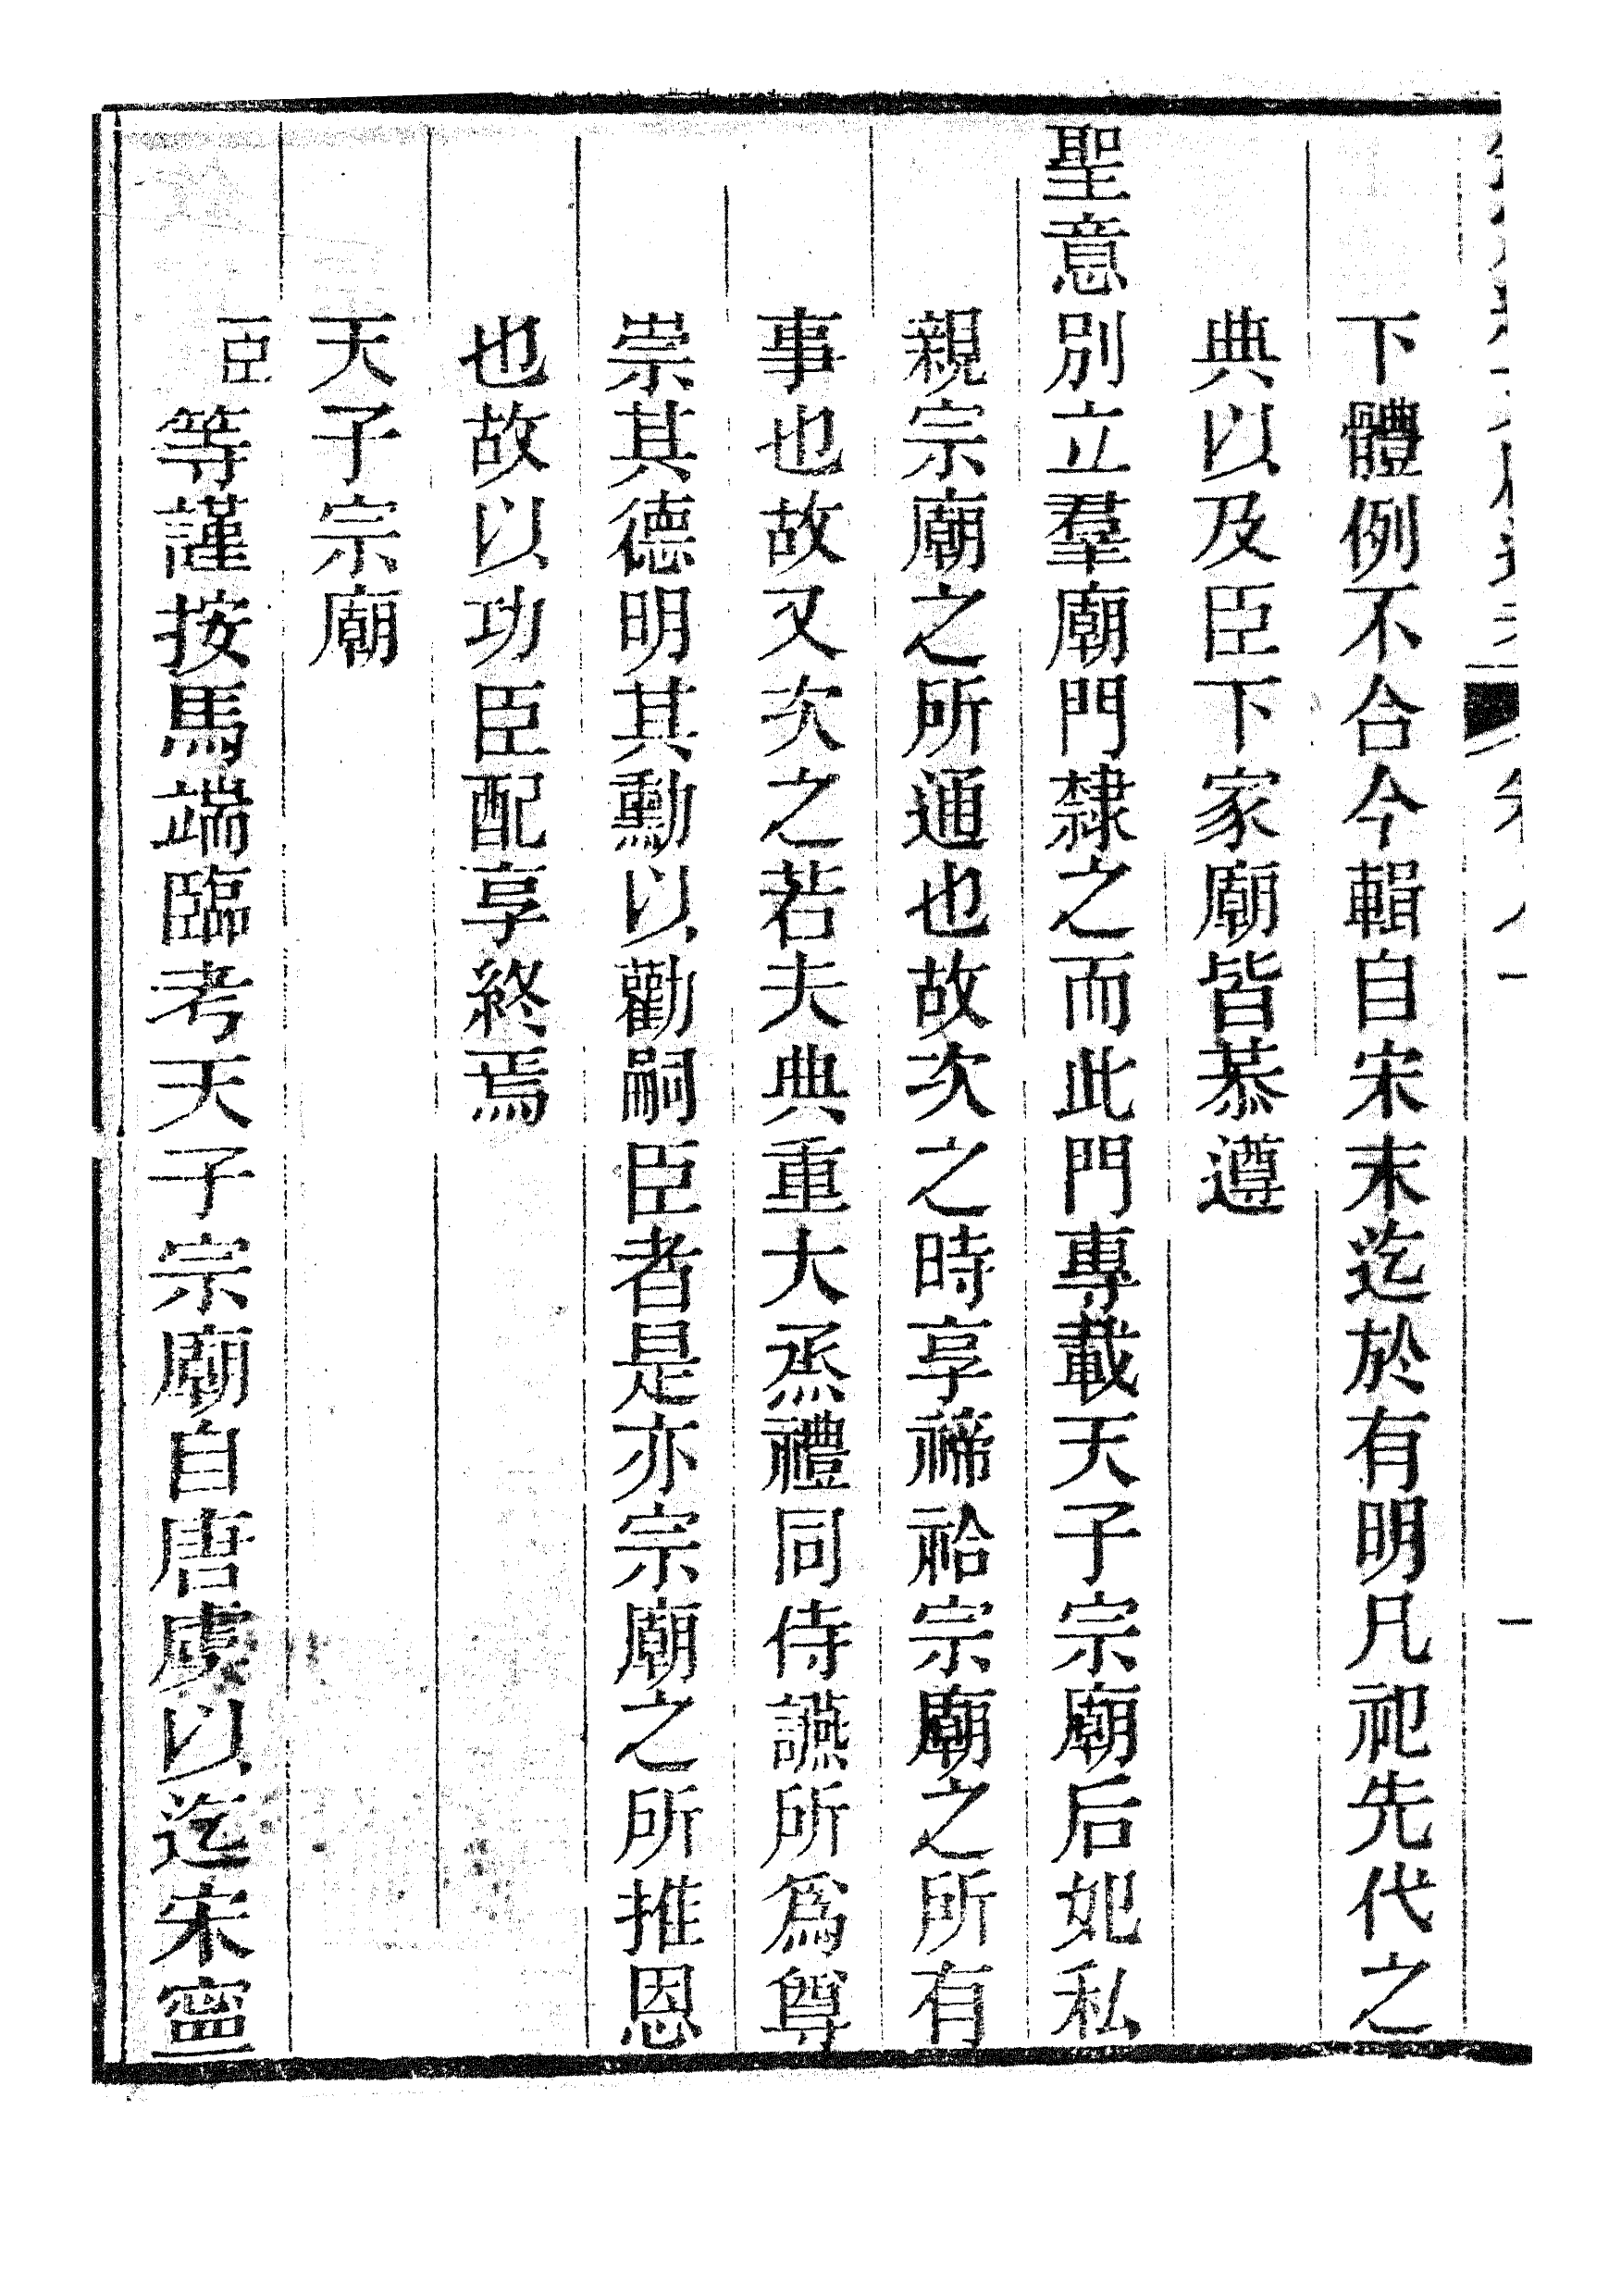 下體例不合今輯自宋末迄於有明凡祀先代之
典以及臣下家廟皆恭遵
聖意別立羣廟門隸之而此門專載天子宗廟后妃私
親宗廟之所通也故次之時享禘祫宗廟之所有
事也故又次之若夫典重大烝禮同侍讌所爲尊
崇其德明其勳以勸嗣臣者是亦宗廟之所推恩
也故以功臣配享終焉
天子宗廟
臣等謹按馬端臨考天子宗廟自唐虞以迄宋寍